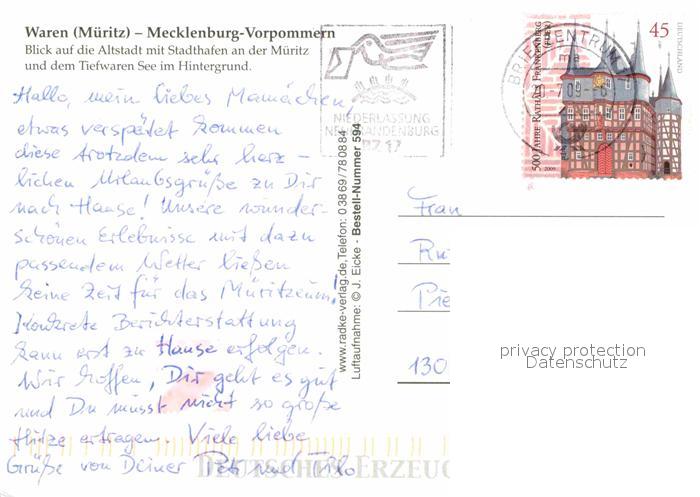 Waren (Müritz) – Mecklenburg-Vorpommern
Blick auf die Altstadt mit Stadthafen an der Müritz
und dem Tiefwaren See im Hintergrund.
Hallo, mein liebes Mamachen,
etwas verspätet kommen
diese trotzdem sehr herz-
lichen Urlaubsgrüße zu Dir
nach Hause! Unsere wunder-
schönen Erlebnisse mit dazu
passendem Wetter ließen
keine Zeit für das Müritzeum!
Konkrete Berichterstattung
kann erst zu Hause erfolgen.
Wir hoffen, Dir geht es gut
und Du musst nicht so große
Hitze ertragen. Viele liebe
Grüße von Deiner Petr und
www.radke-verlag.de, Telefon: 0 38 69/78 08 84
Luftaufnahme: © J. Eicke - Bestell-Nummer 594
NIEDERLASSUNG
NEUBRANDENBURG
BRIEFZENTRUM
45
DEUTSCHLAND
500 JAHRE RATHAUS FRANKENBERG (EDER)
2009
Frau
Ru
Pie
130
privacy protection
Datenschutz
DEUTSCHES ERZEUG